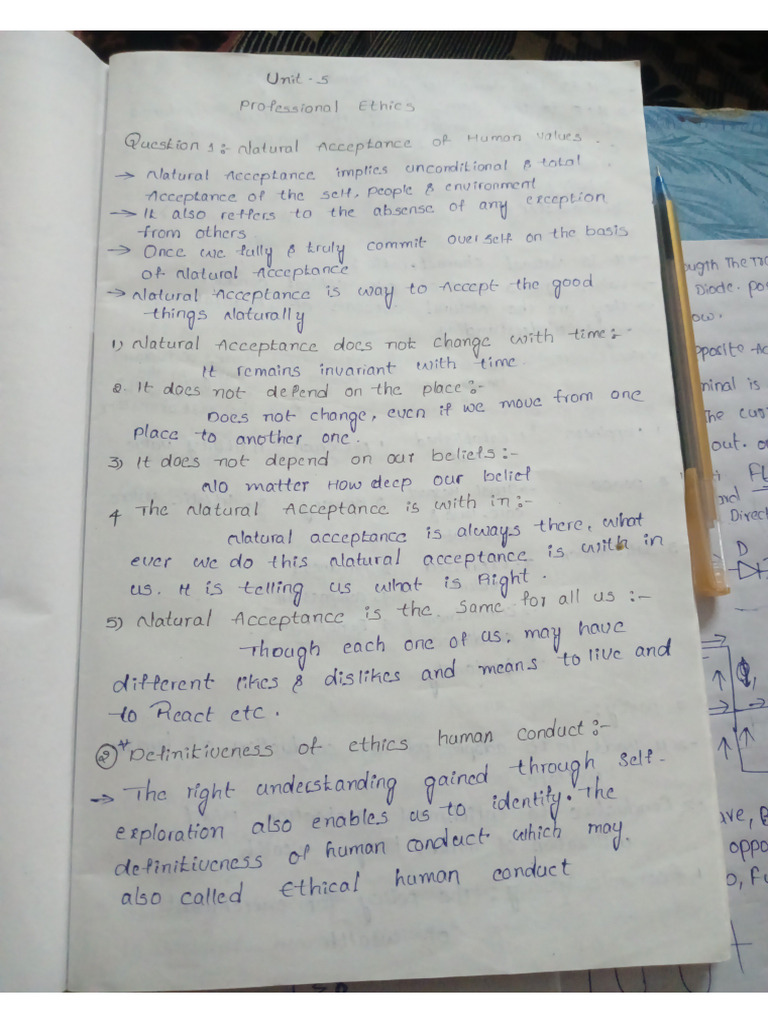 Unit - 5
Professional Ethics
Question 1:- Natural Acceptance of Human values.
→ Natural Acceptance implies unconditional & total
Acceptance of the self, people & environment
→ It also reffers to the absense of any exception
from others
→ Once we fully & truly commit overself on the basis
of Natural Acceptance
→ Natural Acceptance is way to Accept the good
things Naturally
1) Natural Acceptance does not change with time:-
It remains invariant with time.
2. It does not depend on the place:-
Does not change, even if we move from one
place to another one.
3) It does not depend on our beliefs:-
No matter How deep our belief
4 The Natural Acceptance is with in:-
Natural acceptance is always there, what
ever we do this Natural acceptance is with in
us. It is telling us what is Right.
5) Natural Acceptance is the same for all us:-
Though each one of us, may have
different likes & dislikes and means to live and
to React etc.
2 * Definitiveness of ethics human conduct:-
→ The right understanding gained through self-
exploration also enables us to identify. The
definitiveness of human conduct which may
also called Ethical human conduct
ough The
Diode.
ow.
pposite
minal is
The
out.
Direc
D
ave,
oppo